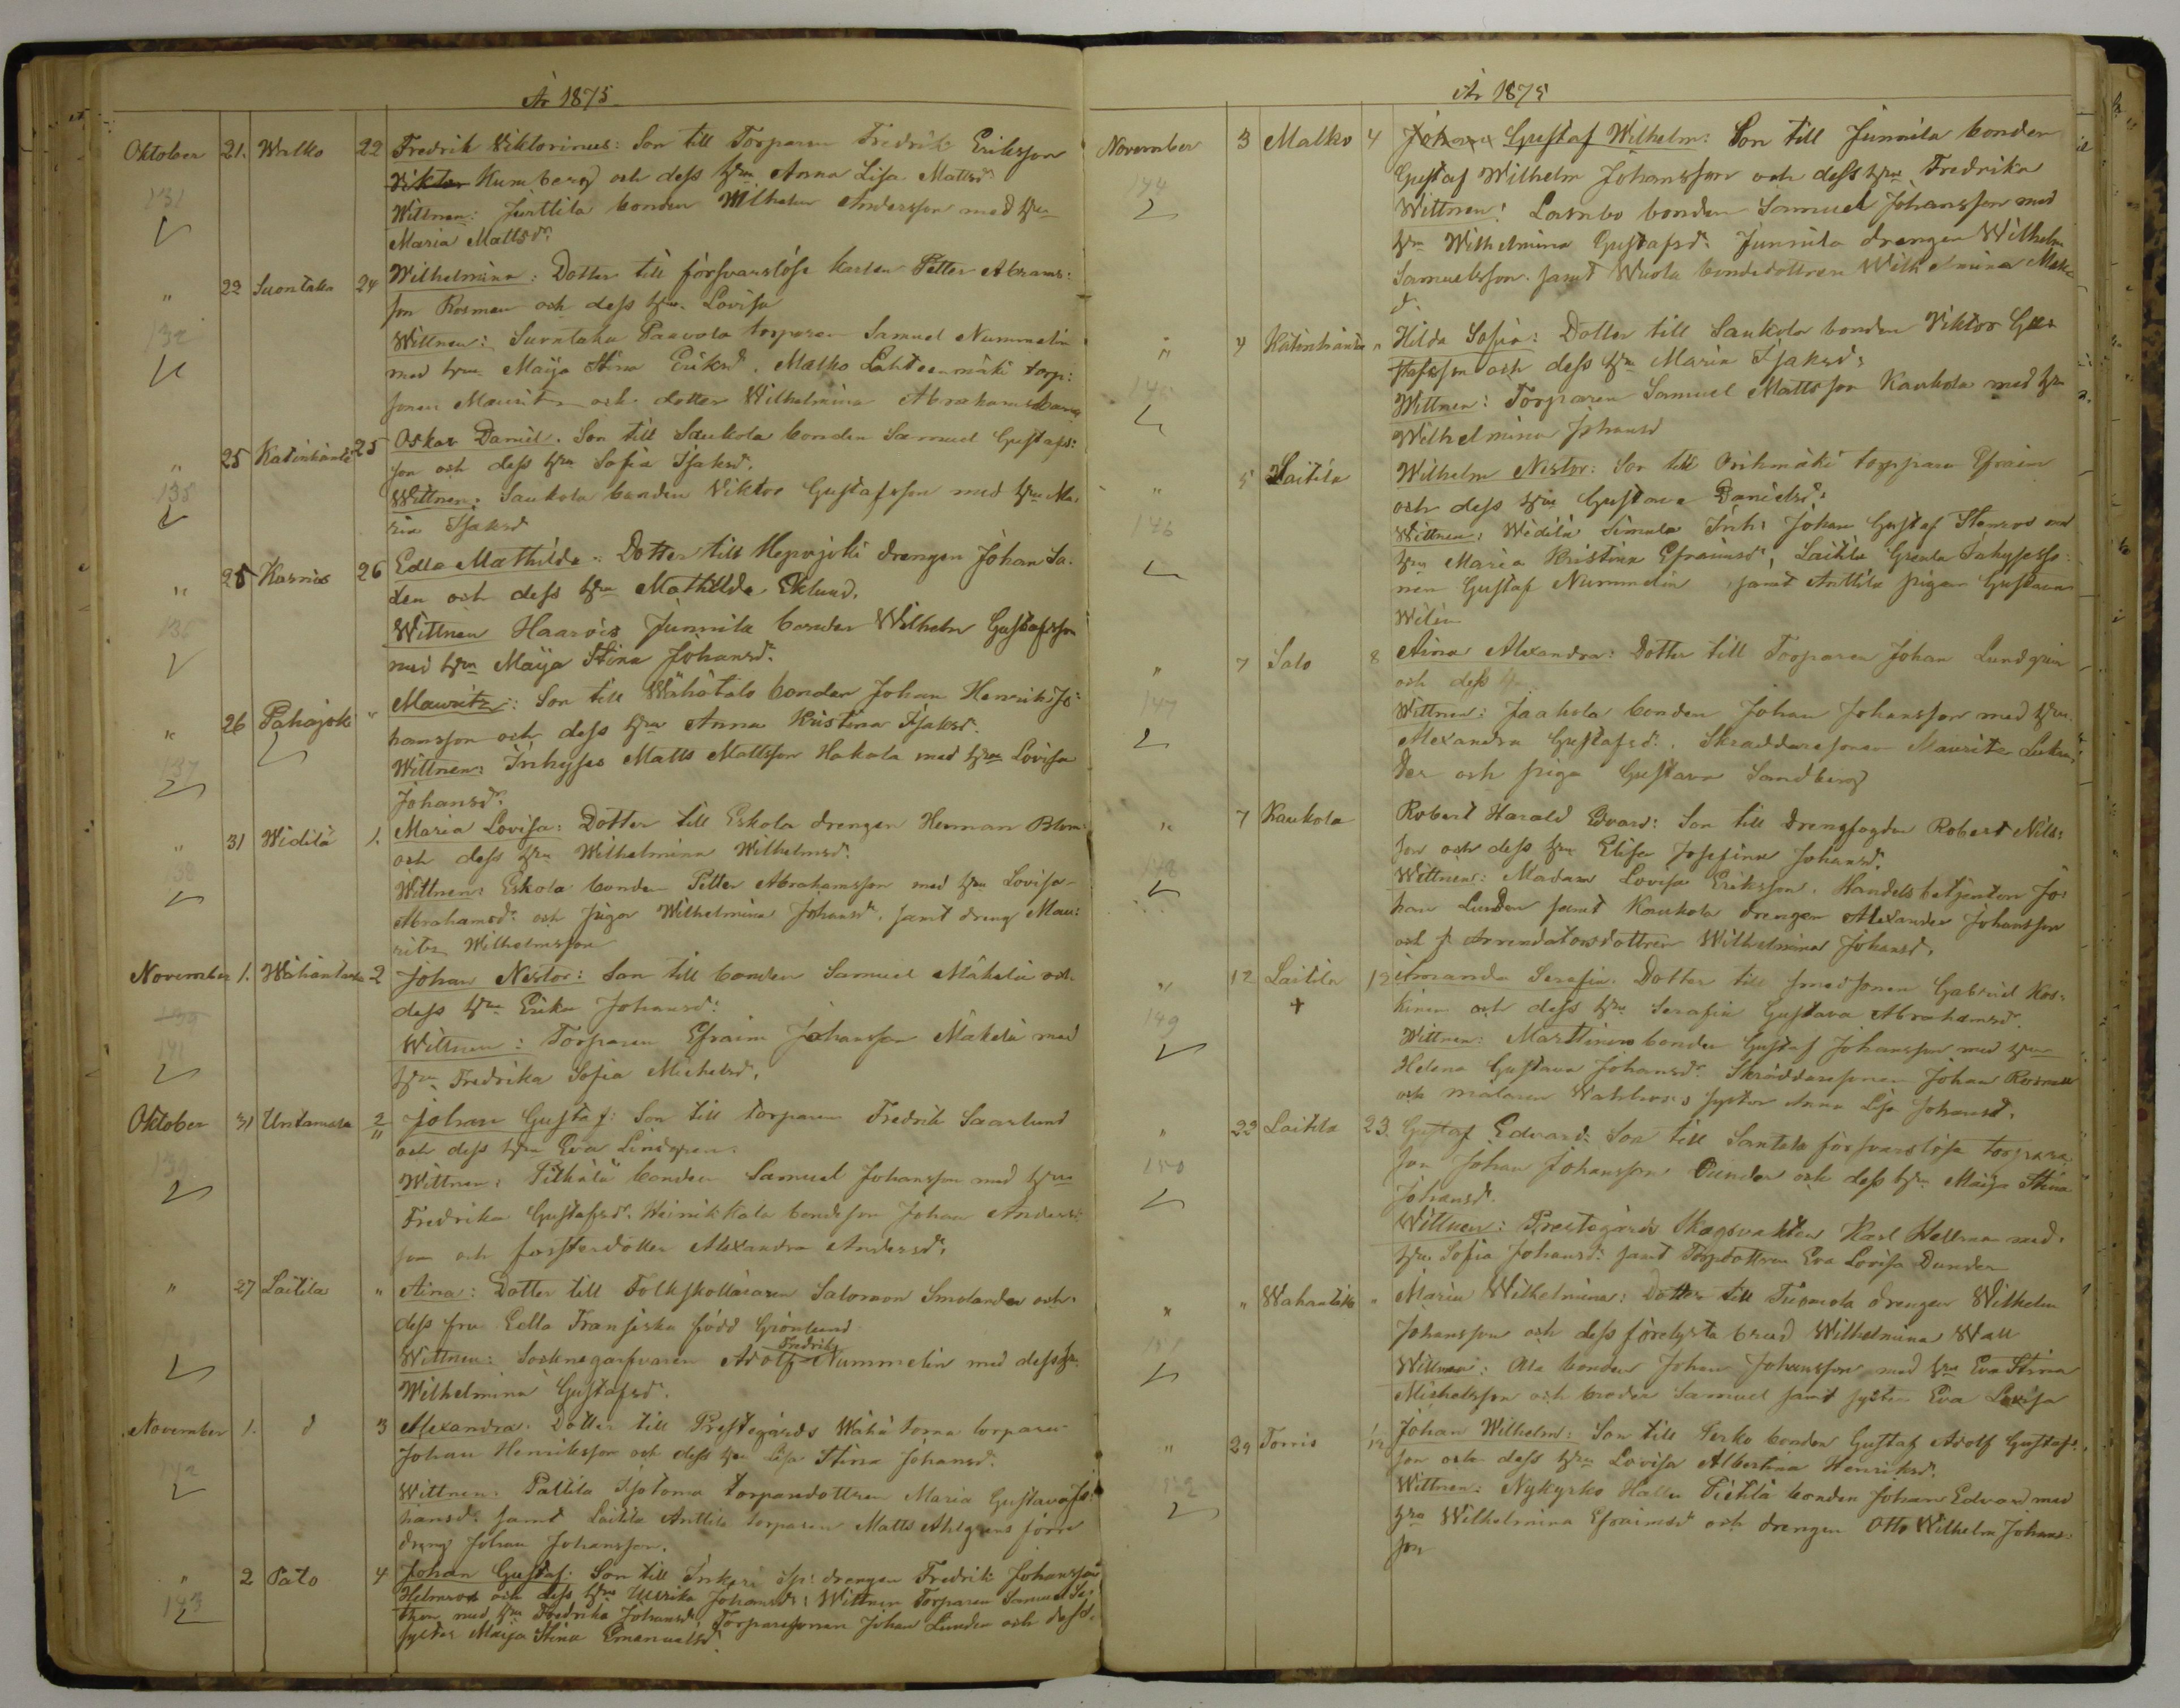 År 1875
Oktober 21. Malko 22 Fredrik Viktorinus: Son till Torparen Fredrik Eriksson
Viktor Kumberg och dess hru Anna Lisa Mattsdr
131 Wittnen: Junttila bonden Wilhelm Andersson med hru
Maria Mattsdr.
" 22 Suontaka 24 Wilhelmina: Dotter till försvarslöse karlen Petter Abrams:
son Rosman och dess hru Lovisa
132 Wittnen: Suontaka Paavola torparen Samuel Nummelin
med hru Maija Stina Eriksd. Malko Lahteenmäki torp:
sonen Mauritz och dotter Wilhelmina Abrahams
" 25 Katinhäntä 25 Oskar Daniel. Son till Saukola bonden Samuel Gustafs:
son och dess hru Sofia Isaksd.
135 Wittnen: Saukola bonden Viktor Gustafsson med hru Ma:
ria Isaksd
" 25 Kasnis 26 Edla Mathilda: Dotter till Hepojoki drengen Johan Sa:
len och dess hru Mathilda Eklund.
136 Wittnen Haarois Junnila bonden Wilhelm Gustafsson
med hru Maija Stina Johansd.
" 26 Pahojoki " Mauritz: Son till Wähätalo bonden Johan Henrik Jo:
hansson och dess hru Anna Kristina Isaksd.
137 Wittnen: Inhyses Matts Mattsson Hakala med hru Lovisa
Johansd.
" 31 Widilä 1. Maria Lovisa: Dotter till Eskola drengen Herman Blom
och dess hru Wilhelmina Wilhelmsd.
138 Wittnen: Eskola bonden Petter Abrahamsson med hru Lovisa
Abrahamsd. och pigan Wilhelmina Johansd. samt dreng Mau:
ritz Wilhelmsson
November 1. Wahantaka 2 Johan Nestor: Son till bonden Samuel Mäkelä och
dess hru Erika Johansd:
141 Wittnen: Torparen Efraim Johansson Mäkelä med
hru Fredrika Sofia Michelsd.
Oktober 31 Untamala 2 Johan Gustaf: Son till torparen Fredrik Saarlund
och dess hru Eva Lindgren.
139 Wittnen: Pitkälä bonden Samuel Johansson med hru
Fredrika Gustafsd. Heinikkala bondson Johan Anders:
son och fosterdotter Alexandra Andersd.
" 27 Laitila " Aina: Dotter till Folkskolläraren Salomon Smolander och
dess fru Edla Fransiska född Grönlund
Fredrik
Wittnen: Socknegarfvaren Adolf Nummelin med dess hr.
Wilhelmina Gustafsd.
November 1. d 3 Alexandra. Dotter till Prestgårds Wähä torna torparen
Johan Henriksson och dess hru Lisa Stina Johansd.
142 Wittnen: Pallila Isotoma torparedottren Maria Gustava Jo:
hansd. samt Laitila Anttila torparen Matts Ahlgrens förre
dreng Johan Johansson.
" 2 Pato 4 Johan Gustaf: Son till Inkeri drengen Fredrik Johansson
143 Helmroos och dess hru Ulrika Johansd: Wittnen Torparen Samuel
med hru Fredrika Johansd. Torparesonen Johan Lunden och dess
syster Maija Stina Emanuelsd.
År 1875
November 3 Malko 4 Johan Gustaf Wilhelm: Son till Junnila bonden
144 Gustaf Wilhelm Johansson och dess hru Fredrika
Wittnen: Lambo bonden Samuel Johansson med
hru Wilhelmina Gustafsd. Junnila drengen Wilhelm
Samuelsson samt Wuola bondedottren Wilhelmina
d.
" 4 Katinhäntä " Hilda Sofia: Dotter till Saukola bonden Viktor Gu
stafsson och dess hru Maria Isaksd:
145 Wittnen: Torparen Samuel Mattsson Kaukola med hru
Wilhelmina Johansd
" 5 Laitila Wilhelm Nestor: Son till torparen Efraim
och dess hru Gustava Danielsd:
146 Wittnen: Widilä Simula Inh: Johan Gustaf Stenroos med
hru Maria Kristina Efraimsd, Laitila Inhyses:
nen Gustaf Nummelin samt Anttila pigan Gustava
" 7 Salo 8 Aina Alexandra: Dotter till Torparen Johan Lundgren
och dess hr
147 Wittnen: Jaakola bonden Johan Johansson med hru
Alexandra Gustafsd. Skraddaresonen Mauritz
och piga Gustava Sandberg
" 7 Kaukola Robert Harald Edvard: Son till Drengfogden Robert Nils:
son och dess hru Elisa Josefina Johansd.
148 Wittnen: Madam Lovisa Eriksson. Handelsbetjenten Jo:
han Lunden samt Kaukola drengen Alexander Johansson
och f. Arrendatorsdottren Wilhelmina Johansd.
" 12 Laitila 12 Amanda Serafia. Dotter till smedsonen Gabriel Kos:
kinen och dess hru Serafia Gustava Abrahamsd.
149 Wittnen: Marttinen bonden Gustaf Johansson med hru
Helena Gustava Johansd. Skräddaresonen Johan
och målaren syster Anna Lisa Johansd.
" 22 Laitila 23. Gustaf Edvard: Son till Santala försvarslöse torpare
son Johan Johansson Dunder och dess hru Maija Stina
150 Johansd.
Wittnen: Prestegårds Skogsvakten Karl Hellman med
hru Sofia Johansd: samt Torpdottren Eva Lovisa Dunder
" " Wahantaka " Maria Wilhelmina: Dotter till Tuomola drengen Wilhelm
Johansson och dess förelysta brud Wilhelmina Wall
151 Wittnen: Ala bonden Johan Johansson med hru Eva Stina
Michelsson och broder Samuel samt syster Eva Lovisa
" 29 Torris Johan Wilhelm: Son till Perko bonden Gustaf Adolf Gustafs:
son och dess hru Lovisa Albertina Henriksd.
152 Wittnen: Nykyrko Hallu Pietilä bonden Johan Edvard med
hru Wilhelmina Efraimsd och drengen Otto Wilhelm Johans:
son